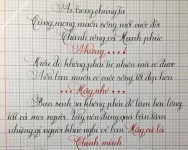 Ai trong chúng ta
Cũng mong muốn sống một cuộc đời
Thành công và Hạnh phúc
Nhưng....!
Điều đó không phải tự nhiên mà có được
Nếu bạn muốn có cuộc sống tốt đẹp hơn
Hãy nhớ...
Bạn sinh ra không phải để làm hài lòng
tất cả mọi người. Vậy nên đừng quá bận tâm
những gì người khác nghĩ về bạn Hãy cứ là
Chính mình